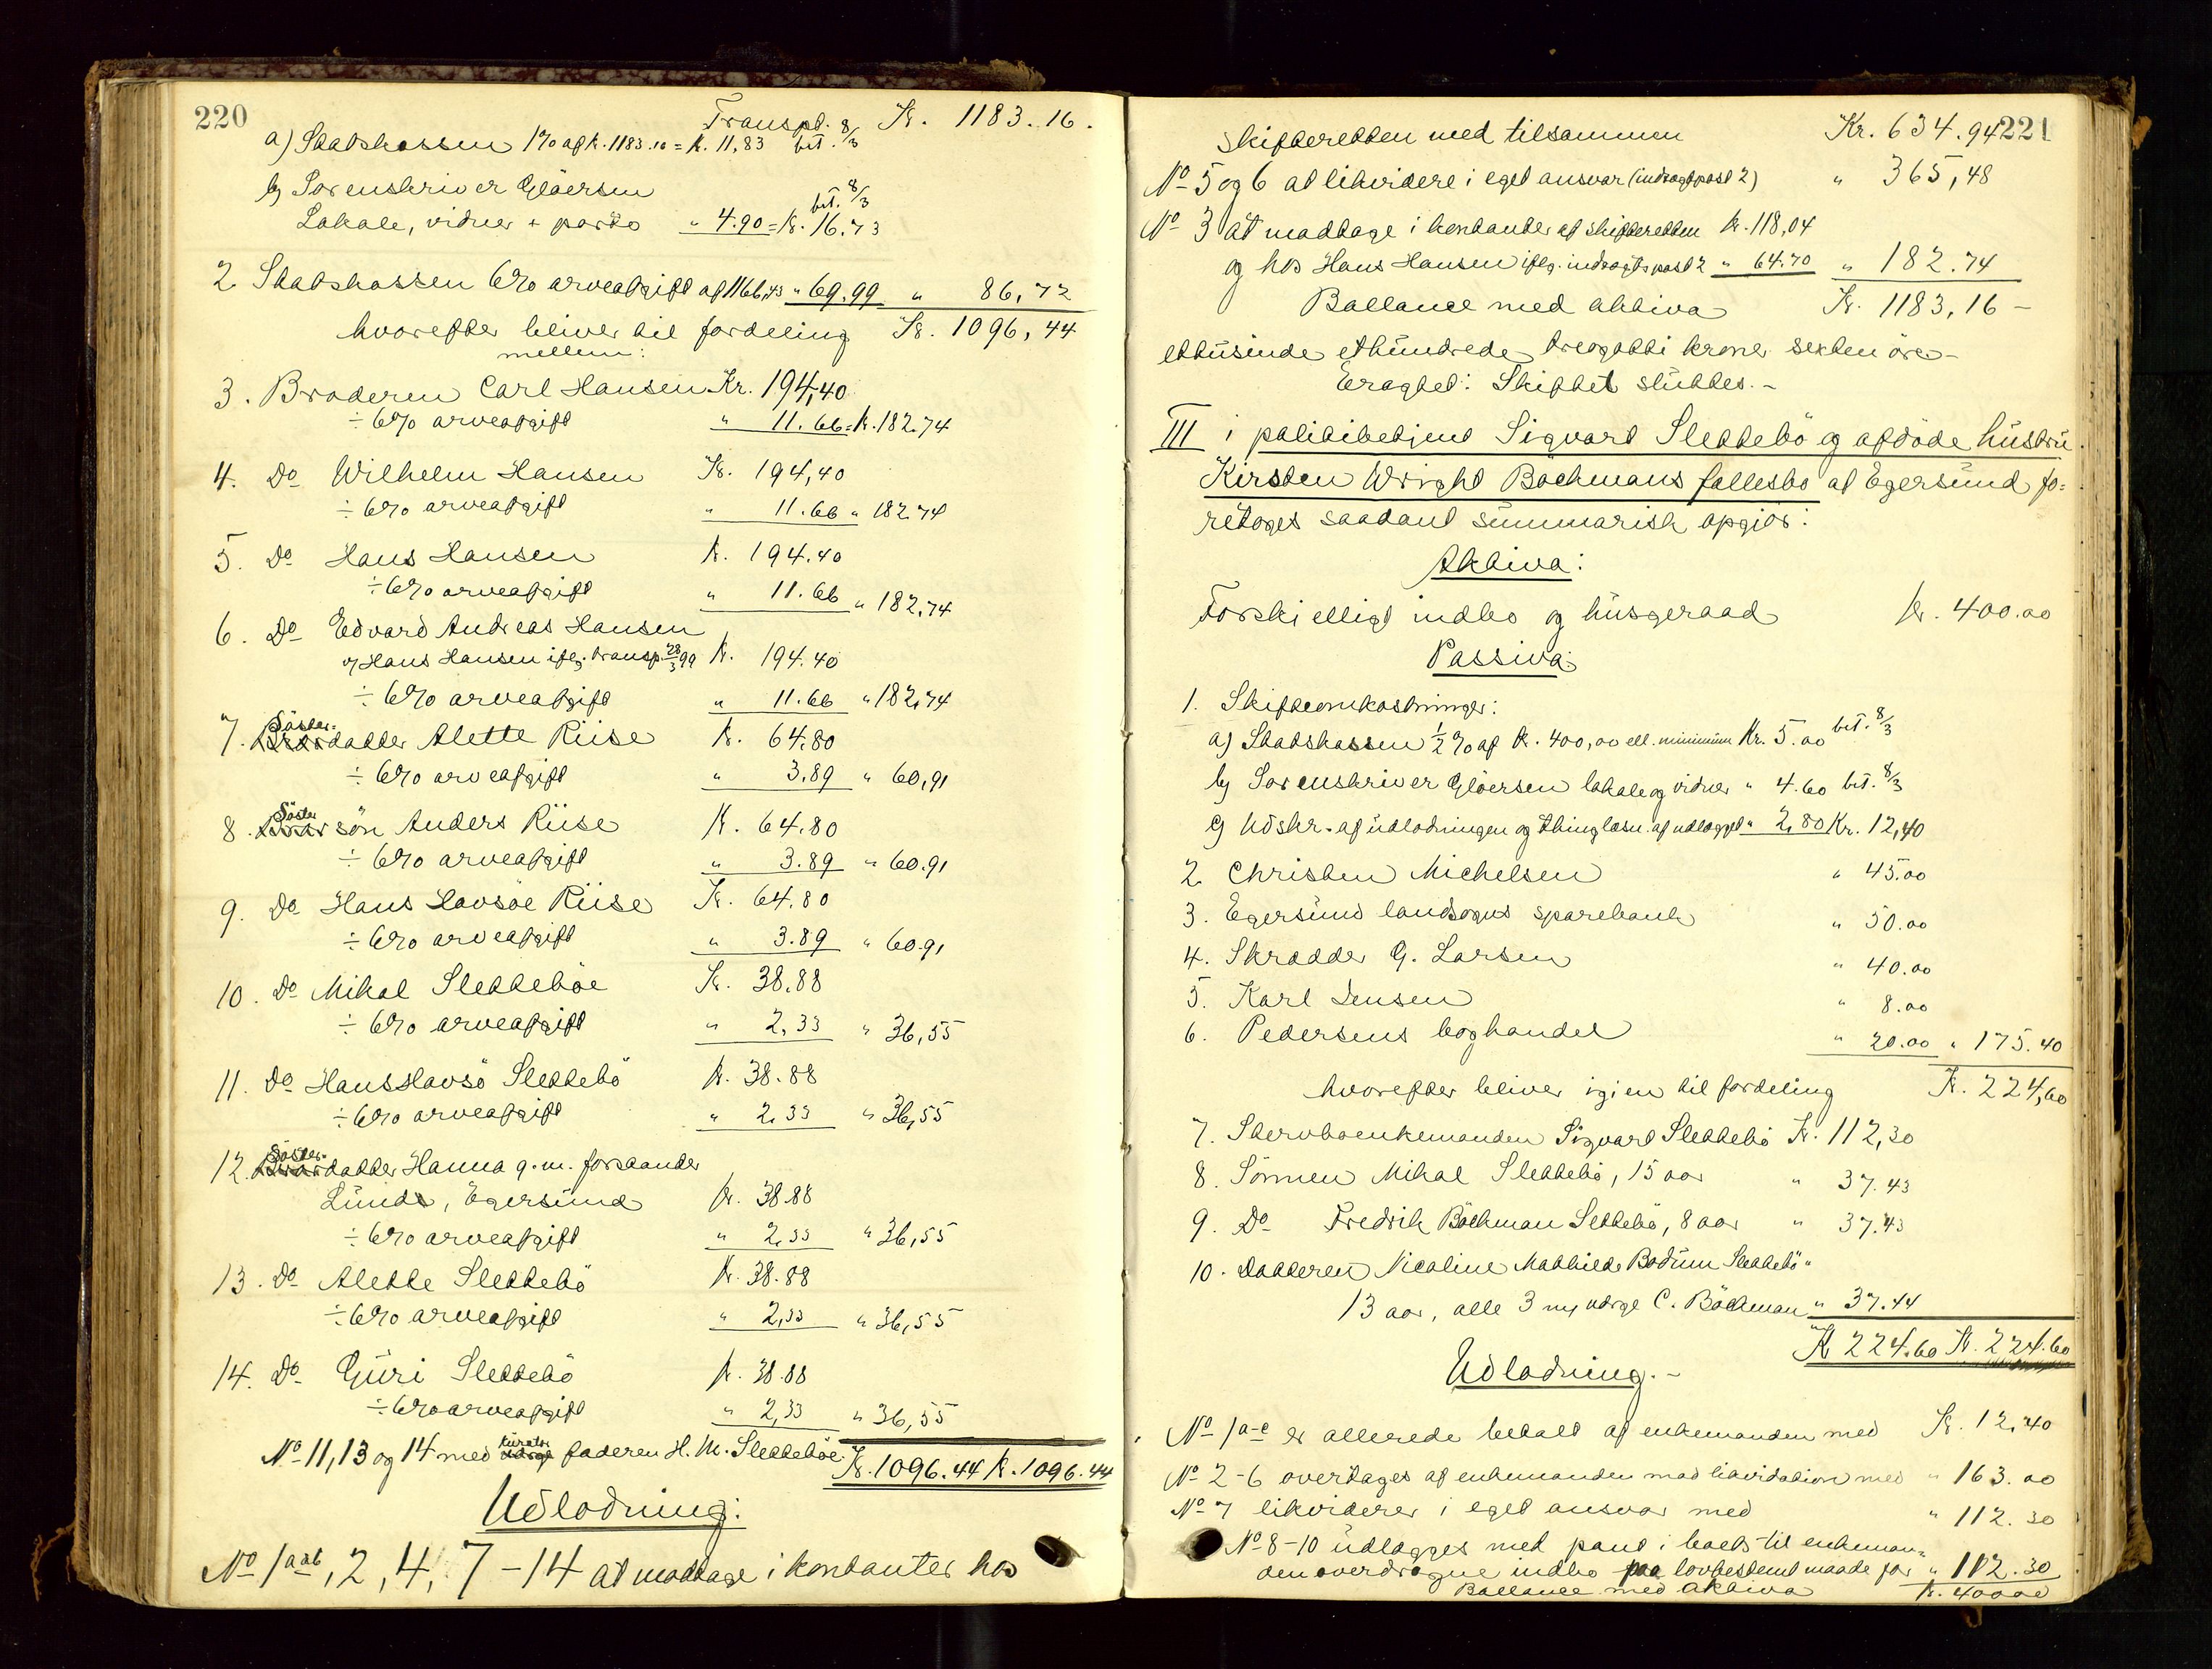 220
Transpt. Kr. 1183.16.
a) Statskassen 1% af k. 1183.16 = k. 11,83 bet. 8/3
b) Sorenskriver Gløersen
Lokale, vidner + porto " 4.90 = k. 16.73 bet. 8/3
2. Statskassen 6% arveafgift af 1166,43 " 69.99 " 86,72
hvorefter bliver til fordeling Kr. 1096,44
mellem:
3. Broderen Carl Hansen Kr. 194,40
÷ 6% arveafgift " 11.66 = k. 182.74
4. Do Wilhelm Hansen Kr. 194,40
÷ 6% arveafgift " 11.66 " 182.74
5. Do Hans Hansen k. 194.40
÷ 6% arveafgift " 11.66 " 182,74
6. Do Edvard Andreas Hansen
v/ Hans Hansen iflg. transp. 28/3 99 k. 194.40
÷ 6% arveafgift " 11.66 " 182,74
7. Söster-datter Alette Riise k. 64.80
÷ 6% arveafgift " 3.89 " 60,91
8. Söster sön Anders Riise k. 64.80
÷ 6% arveafgift " 3.89 " 60.91
9. Do Hans Havsöe Riise Kr. 64.80
÷ 6% arveafgift " 3.89 " 60.91
10. Do Mikal Sletteböe Kr. 38.88
÷ 6% arveafgift " 2,33 " 36,55
11. Do Hans Havsö Slettebö k. 38.88
÷ 6% arveafgift " 2.33 " 36,55
12. Söster-datter Hanna g. m. forstander
Lunde, Egersund k. 38.88
÷ 6% arveafgift " 2.33 " 36,55
13. Do Alette Slettebö k. 38.88
÷ 6% arveafgift " 2,33 " 36,55
14. Do Guri Slettebö k. 38.88
÷ 6% arveafgift " 2,33 " 36,55
No 11, 13 og 14 med kurator faderen H. M. Sletteböe Kr. 1096.44 k. 1096.44
Udlodning:
No 1 a&b, 2, 4, 7-14 at modtage i kontanter hos
221
Skifteretten med tilsammen Kr. 634.94
No 5 og 6 at likvidere i eget ansvar (indtægtspost 2) " 365,48
No 3 at modtage i kontanter af skifteretten k. 118,04
og hos Hans Hansen iflg. indtægtspost 2 " 64.70 " 182.74
Ballance med aktiva Kr. 1183,16 -
ettusinde ethundrede treogotti kroner sexten öre -
Eragtet: Skiftet sluttes. -
III i politibetjent Sigvart Slettebö og afdöde hustru
Kirsten Wright Böchmans fællesbo af Egersund fo=
retoges saadant summarisk opgjör:
Aktiva:
Forskielligt indbo og husgeraad k. 400.00
Passiva:
1. Skifteomkostninger:
a) Statskassen ½ % af k. 400,00 ell. minimum Kr. 5.00 bet. 8/3
b) Sorenskriver Gløersen lokale og vidner " 4.60 bet. 8/3
c) Udskr. af udlodningen og thinglæsn. af udlægget " 2,80 Kr. 12,40
2. Christen Michelsen " 45.00
3. Egersunds landsogns sparebank " 50.00
4. Skrædder G. Larsen " 40.00
5. Karl Jensen " 8.00
6. Pedersens boghandel " 20.00 " 175.40
hvorefter bliver igjen til fordeling Kr. 224,60
7. Stervboenkemanden Sigvart Slettebö Kr. 112,30
8. Sönnen Mikal Slettebö, 15 aar " 37.43
9. Do Fredrik Böchman Settebö, 8 aar " 37.43
10. Datteren Nicoline Mathilde Bodum Slettebö "
13 aar, alle 3 m/ værge C. Böchman " 37.44
Kr 224.60 Kr. 224.60
Udlodning. -
No 1 a-c er allerede betalt af enkemanden med Kr. 12,40
No 2-6 overtages af enkemanden mod likvidation med " 163.00
No 7 likviderer i eget ansvar med " 112.30
No 8-10 udlægges med pant i boets til enkeman=
den overdragne indbo paa lovbestemt maade for " 112.30
Ballance med Aktiva k. 400.00